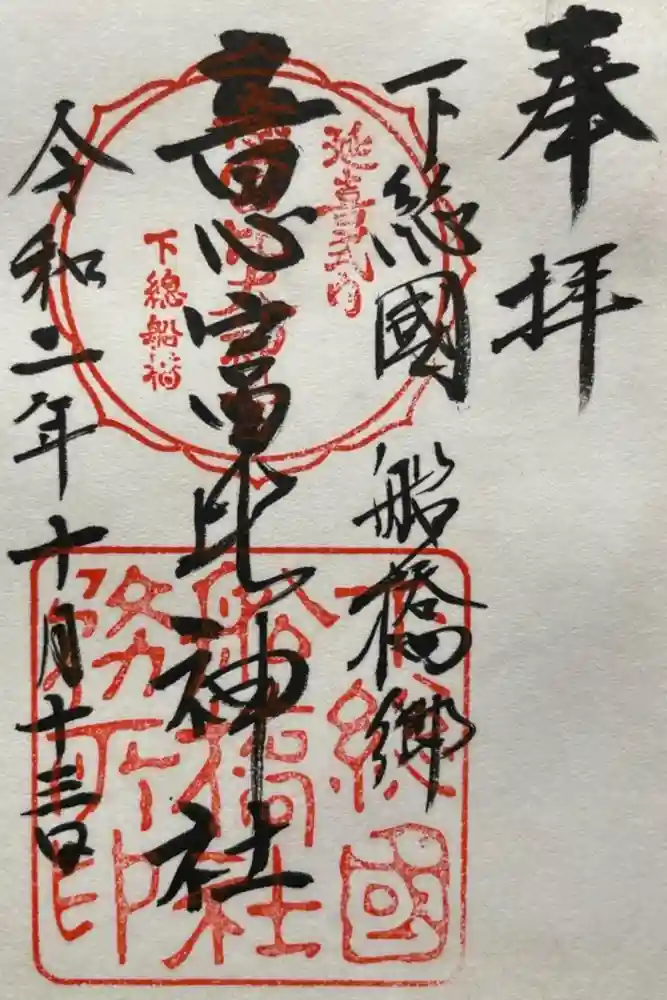 奉拝
下總國 船橋郷
意富比神社
令和二年十月十三日
延喜式内
下總船橋
下總國
船橋社
務所印